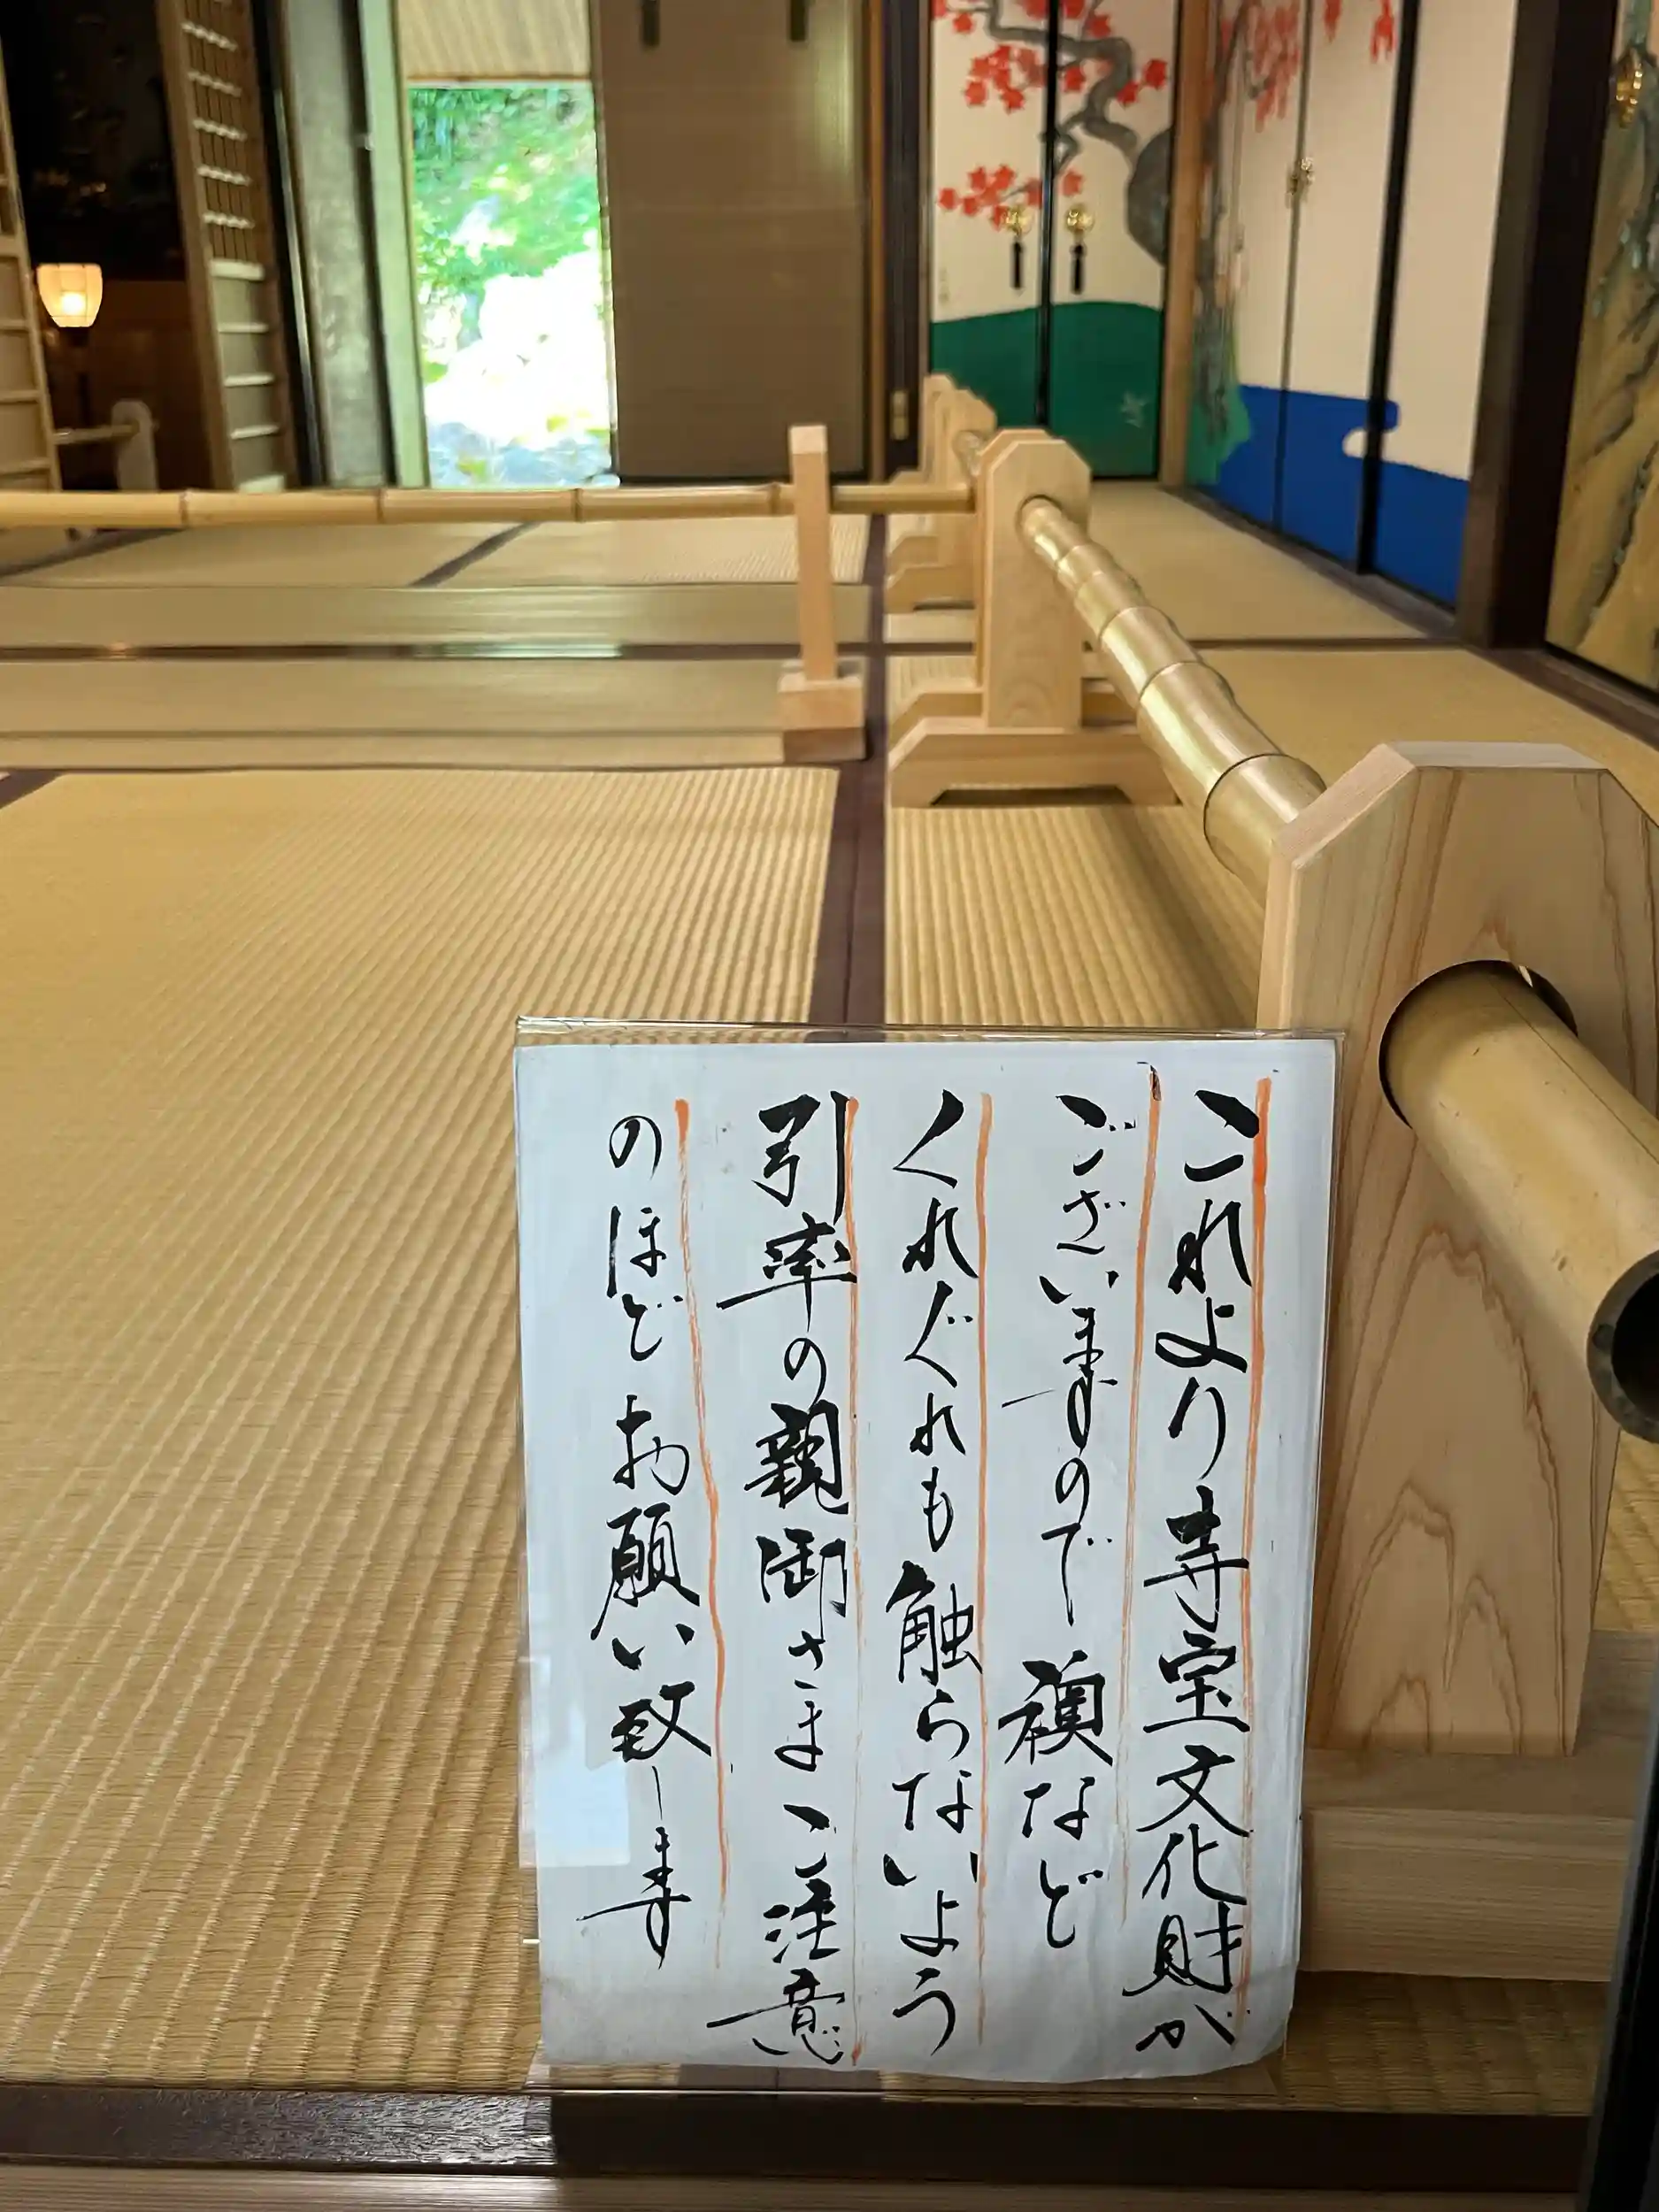 これより寺宝文化財が
ございますので襖など
くれぐれも触らないよう
引率の親御さまご注意
のほどお願い致します